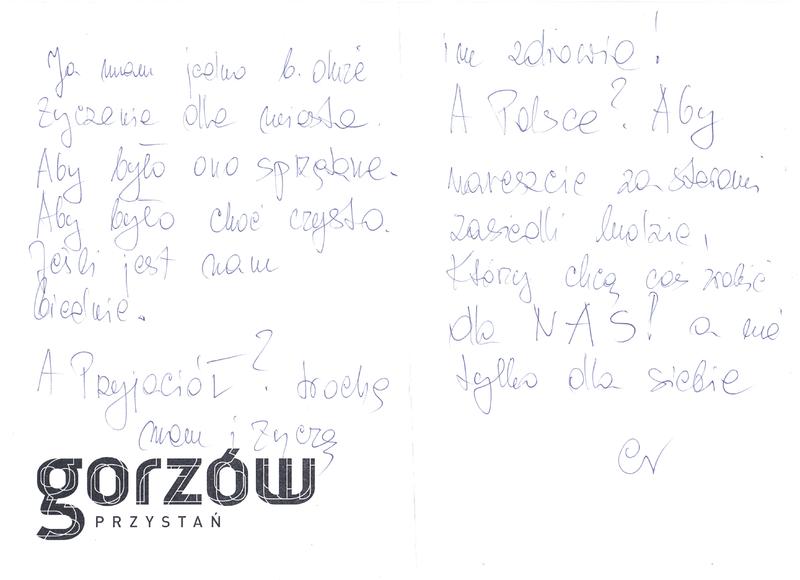 Ja mam jedno b. duże
życzenie dla miasta.
Aby było ono sprzątane.
Aby było choć czysto.
Jeśli jest nam
biednie.
A Przyjaciół? trochę
mam i życzę
gorzów
PRZYSTAŃ
im zdrowia!
A Polsce? Aby
nareszcie za sterami
zasiedli ludzie,
którzy chcą coś zrobić
dla NAS! a nie
tylko dla siebie